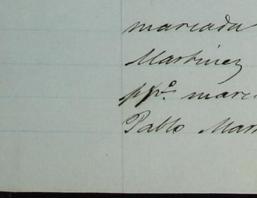 marcada
Martinez
pp.º marc
Pablo Mar